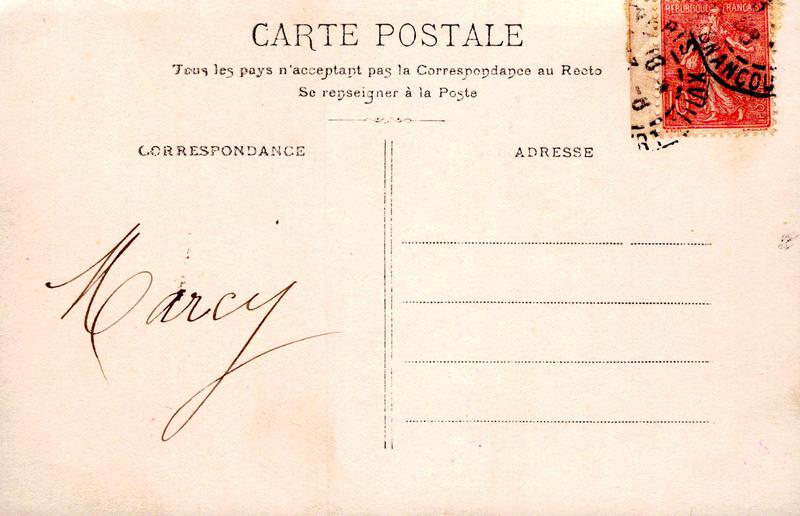 CARTE POSTALE
Tous les pays n'acceptant pas la Correspondance au Recto
Se renseigner à la Poste
CORRESPONDANCE
ADRESSE
Marcy
REPUBLIQUE FRANÇAISE
10